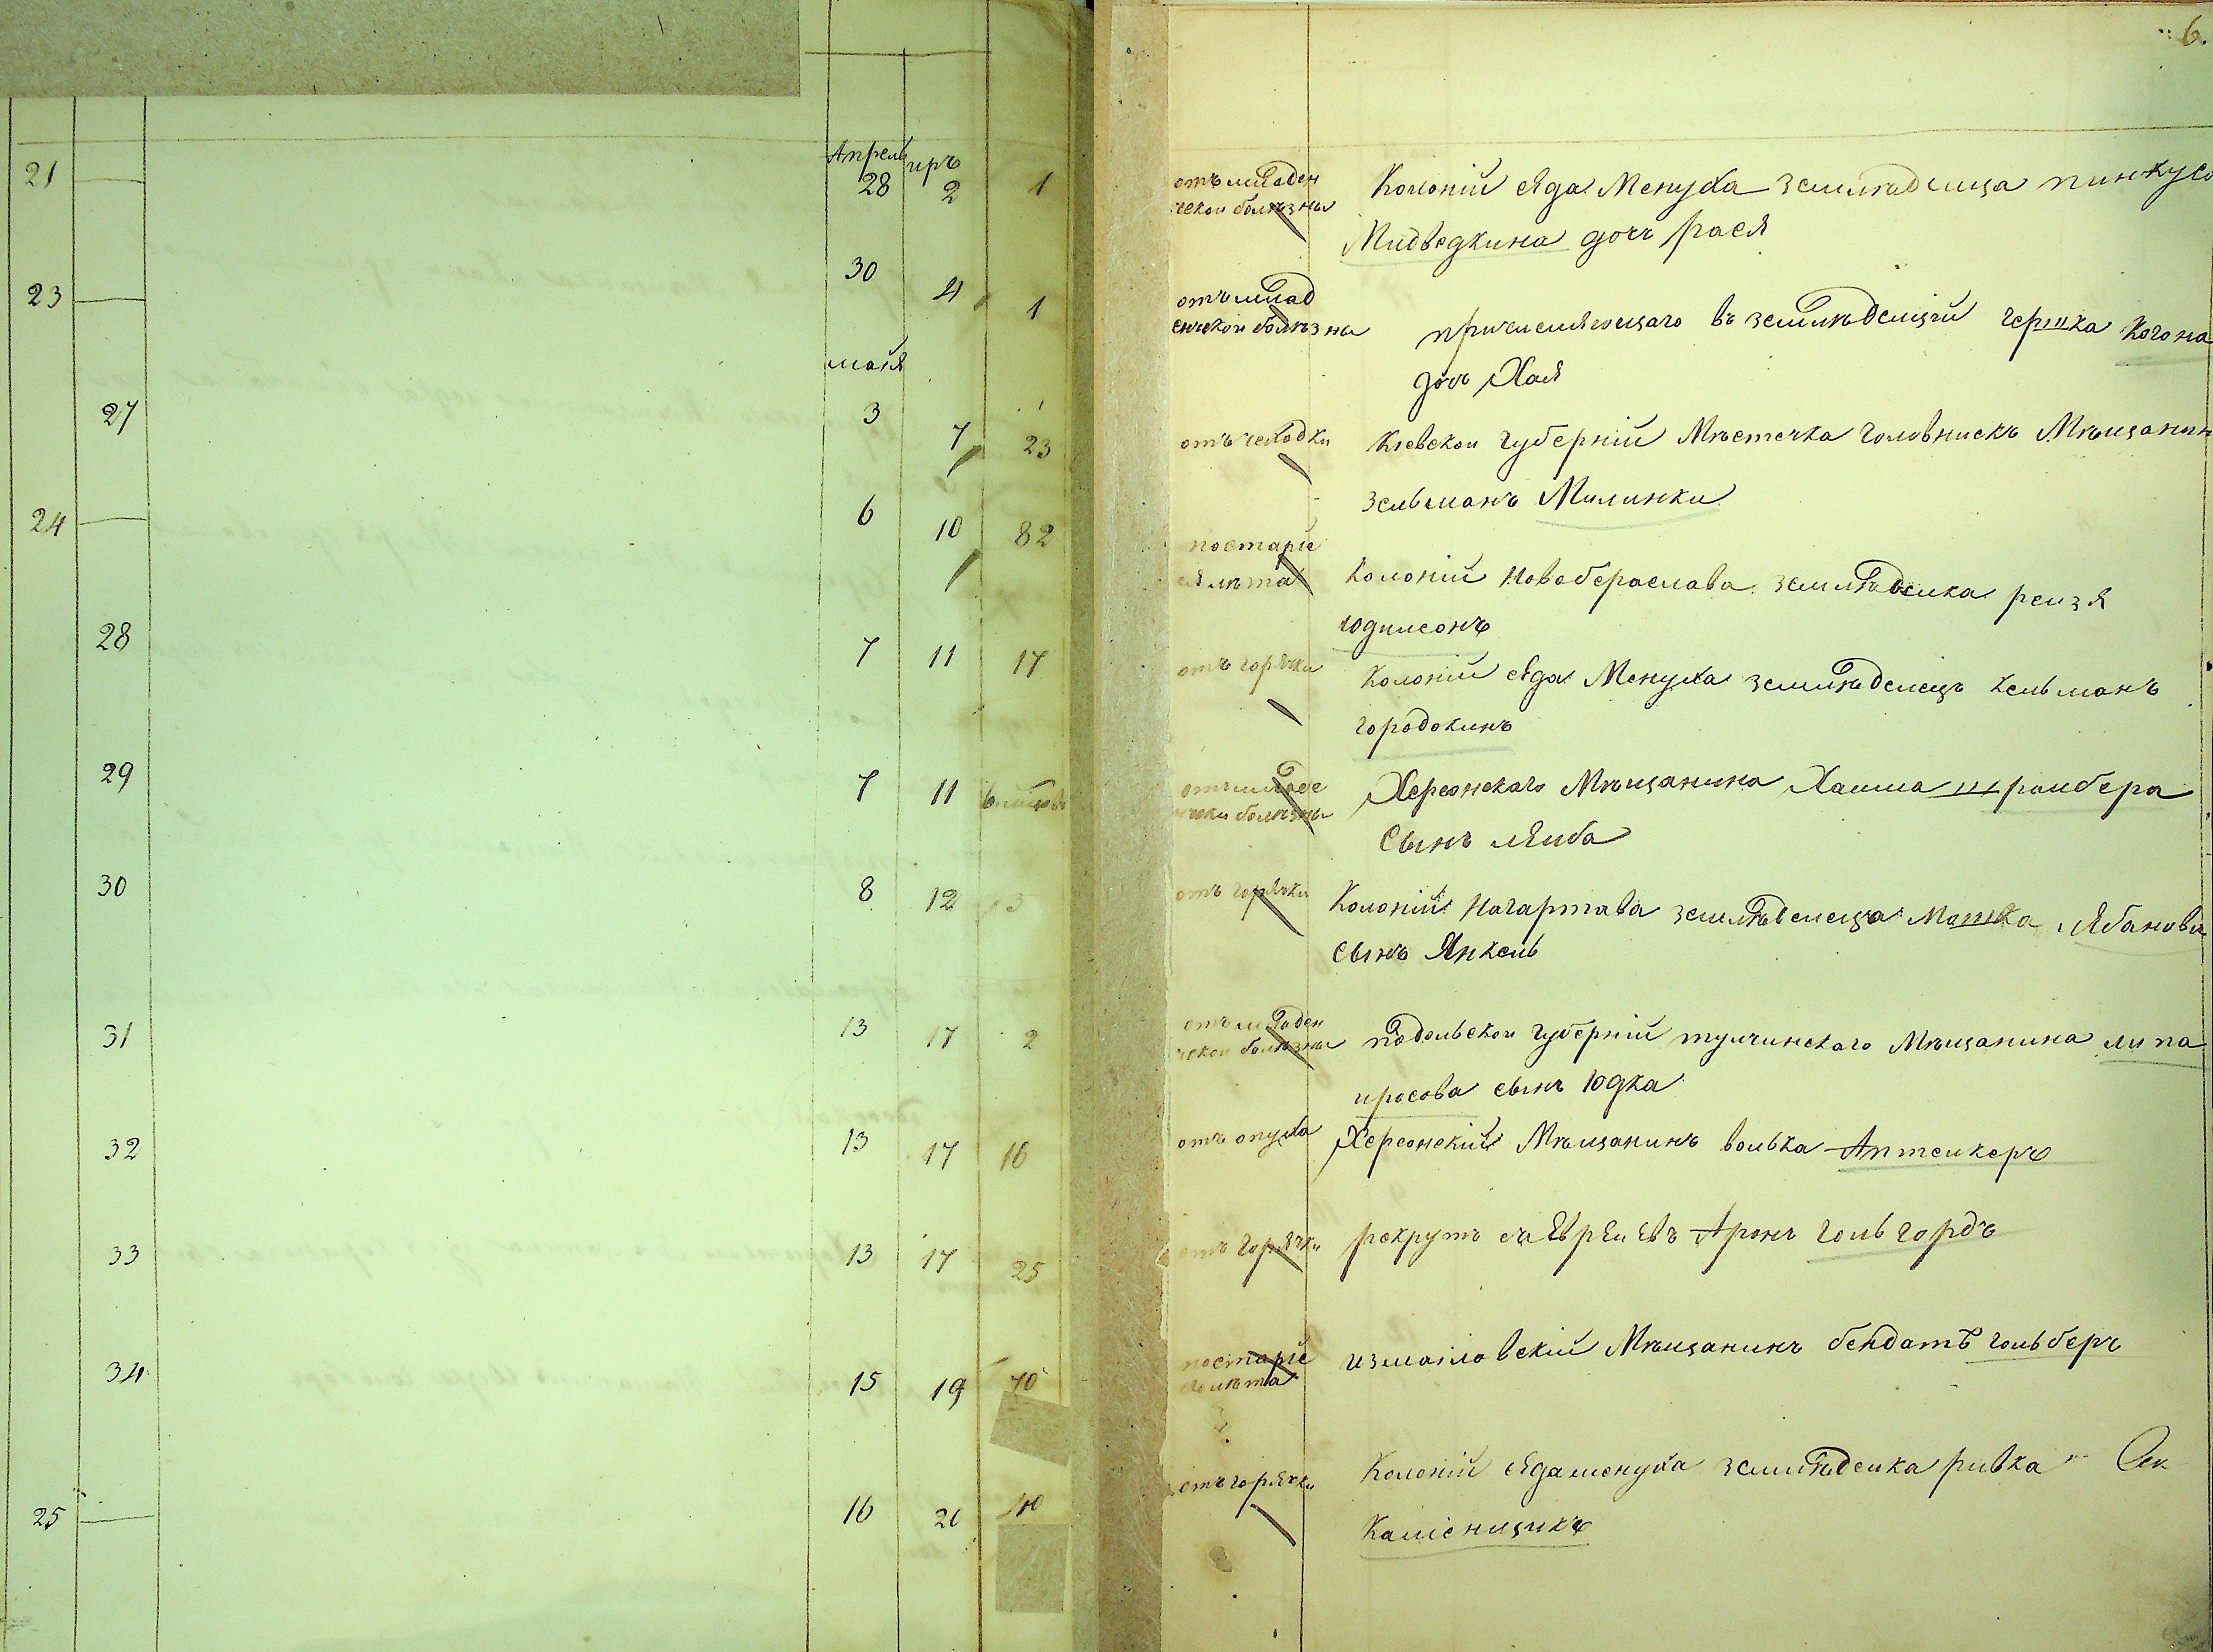 6.
Апрель иръ
21 28 2 1 отъ младен
ческои болѣзны
Колоніи ѣда Менуха земледелца пинкуса
Мидведкина дочъ рася
23 30 4 1 отъ млад
енческои болѣзны
причисляющаго въ земледелціи гершка Когона
дочъ Хая
маія
27 3 7 23 отъ чехотки
Кіевскои губерніи Мѣстечка Головнискъ Мѣщанин
Зельманъ Милинки
24 6 10 82 постаріе
я лѣта
Колоніи Новобераслава земледелка рейзя
юдилсонъ
28 7 11 17 отъ горячки
Колоніи ѣда Менуха земледелецъ Кельманъ
городокинъ
29 7 11
болѣзны
Херсонскаго Мѣщанина Хаима
Сынъ лейба
30 8 12 13 отъ горячки
Колоніи Нагартава земледелеца Мошка Лябанова
сынъ Янкель
31 13 17 2 отъ младен
ческои болѣзны
подольскои губерніи тулчинскаго Мѣщанина липа
иросова сынъ юдка
32 13 17 16 отъ опуха
Херсонскій Мѣщанинъ волька Аптейкеръ
33 13 17 25 отъ горячки
рекрутъ съ Евреиевъ Аронъ гольгордъ
34 15 19 70 постаріе
лѣта
измаиловскій Мѣщанинъ бендатъ гольберъ
25 16 20 40 отъ горячки
Колоніи ѣдаменуха земледелка ривка
Каміенщикъ